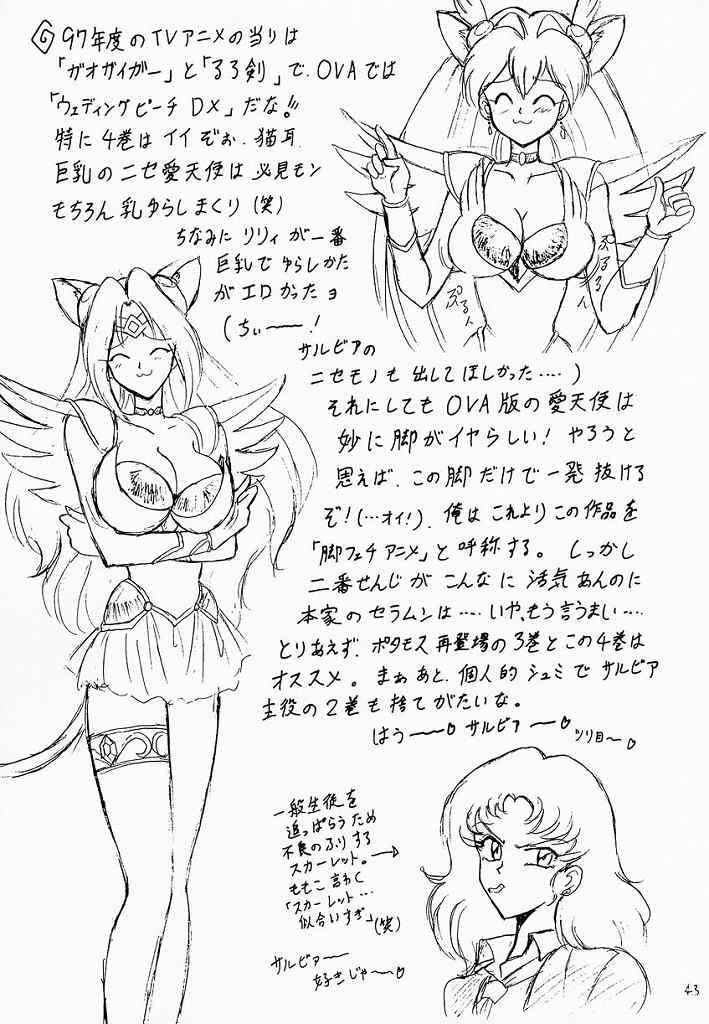 97年度のTVアニメの当りは
「ガオガイガー」と「るろ剣」で、OVAでは
「ウェディングピーチDX」だな!!
特に4巻はイイぞぉ、猫耳、
巨乳のニセ愛天使は必見モン
もちろん乳ゆらしまくり(笑)
ちなみにリリィが一番
巨乳でゆらしかた
がエロかったョ
(ちぃ〜〜!
サルビアの
ニセモノも出してほしかった‥‥)
それにしてもOVA版の愛天使は
妙に脚がイヤらしい!やろうと
思えば、この脚だけで一発抜ける
ぞ!(…オイ!)、俺はこれよりこの作品を
「脚フェチアニメ」と呼称する。しっかし
二番せんじがこんなに活気あんのに
本家のセラムンは‥‥いや、もう言うまい‥‥
とりあえず、ポタモス再登場の3巻とこの4巻は
オススメ。まぁあと、個人的シュミでサルビア
主役の2巻も捨てがたいな。
はう〜〜♡サルビァ〜♡
ツリ目〜♡
ぷるん
ぷるるん
一般生徒を
追っぱらうため
不良のふりする
スカーレット。→
ももこ言わく
「スカーレット…
似合いすぎ」(笑)
サルビァ〜〜
好きじゃ〜♡
43